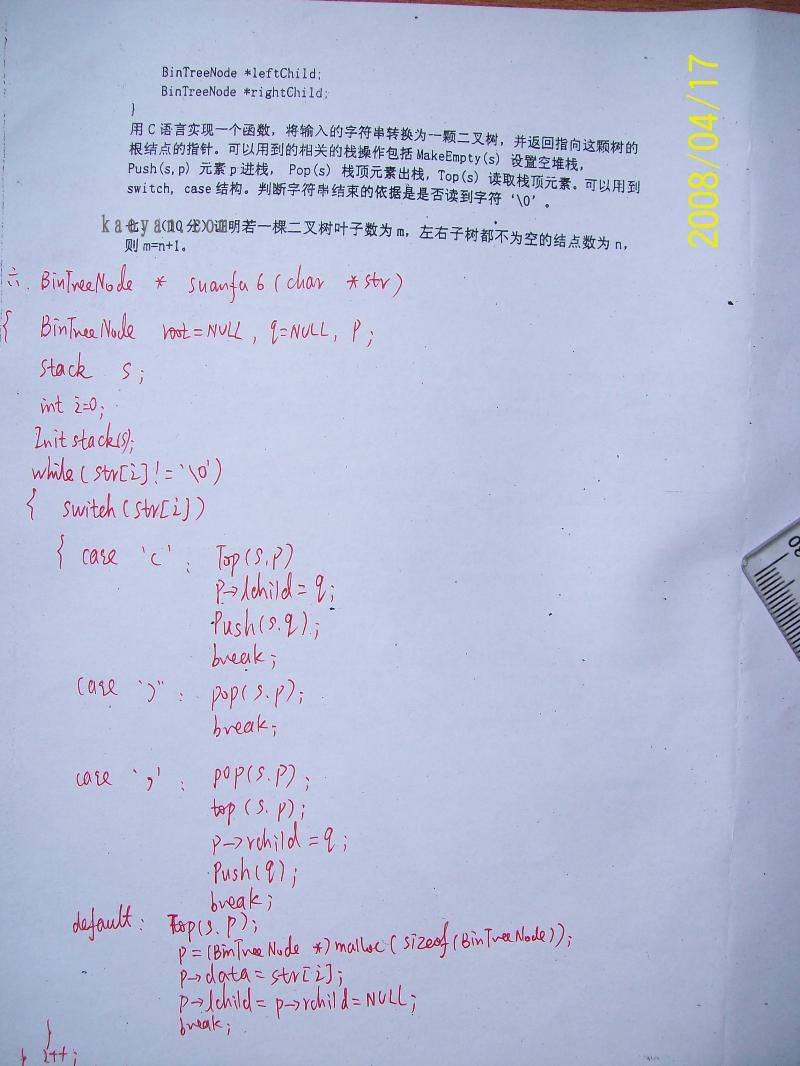 BinTreeNode *leftChild;
BinTreeNode *rightChild;
}
用C语言实现一个函数，将输入的字符串转换为一颗二叉树，并返回指向这颗树的
根结点的指针。可以用到的相关的栈操作包括MakeEmpty(s) 设置空堆栈，
Push(s,p) 元素p进栈， Pop(s) 栈顶元素出栈，Top(s) 读取栈顶元素。可以用到
switch, case结构。判断字符串结束的依据是是否读到字符‘\0’。
七、（10分）证明若一棵二叉树叶子数为m，左右子树都不为空的结点数为n，
则m=n+1。
2008/04/17
六. BinTreeNode * suanfa6(char *str)
{ BinTreeNode root=NULL, q=NULL, P;
stack s;
int i=0;
Init stack(s);
while(str[i]!='\0')
{ switch(str[i])
{ case '(' : Top(s,p)
P->lchild=q;
Push(s.q);
break;
case ')' : pop(s.p);
break;
case ',' : pop(s.p);
top(s.p);
p->rchild=q;
Push(q);
break;
default: Top(s.p);
p=(BinTreeNode *)malloc(sizeof(BinTreeNode));
p->data=str[i];
p->lchild=p->rchild=NULL;
break;
}
} i++;